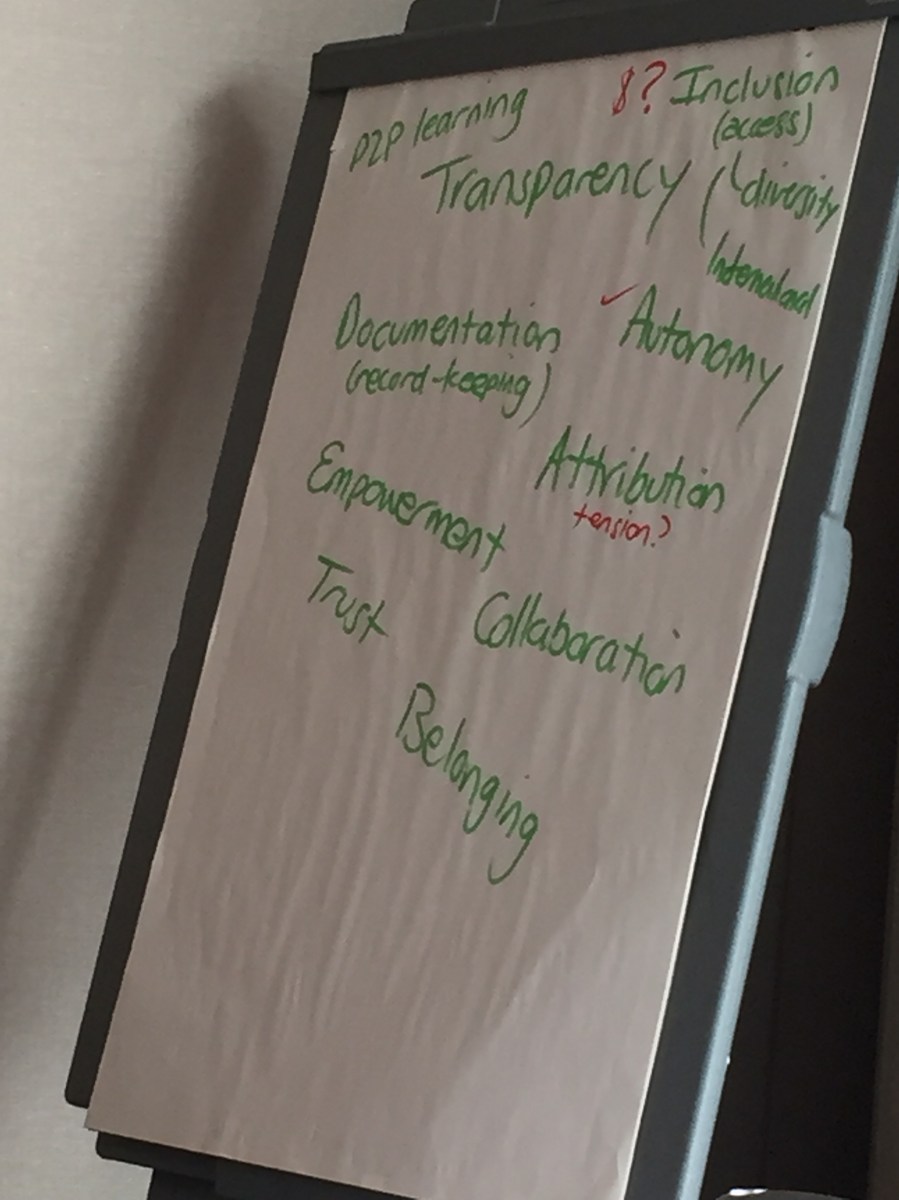 P2P learning
$? Inclusion
(access)
Transparency
diversity
Documentation
(record-keeping)
✓ Autonomy
Attribution
tension?
Empowerment
Trust
Collaboration
Belonging